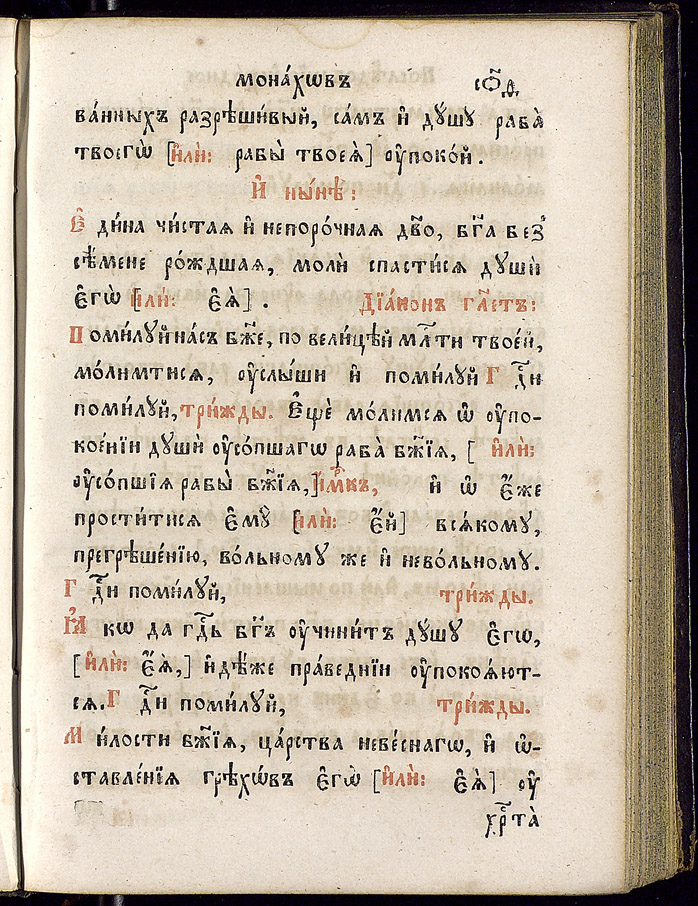 мона́хѡвъ сф҃д
ва́нныхъ разрѣши́вый, са́мъ и҆ дꙋ́шꙋ раба̀
твоегѡ̀ [и҆лѝ: рабы̀ твоеѧ̀] ᲂу҆поко́й.
И҆ ны́нѣ:
Е҆ди́на чи́стаѧ и҆ непоро́чнаѧ дв҃о, бг҃а без̾
сѣ́мене ро́ждшаѧ, молѝ спасти́сѧ дꙋшѝ
є҆гѡ̀ [и҆лѝ: є҆ѧ̀]. Дїа́конъ гл҃етъ:
Поми́лꙋй на́съ бж҃е, по вели́цѣй млⷭ҇ти твое́й,
мо́лимтисѧ, ᲂу҆слы́ши и҆ поми́лꙋй Гдⷭ҇и
поми́лꙋй, три́жды. Е҆щѐ мо́лимсѧ ѡ҆ ᲂу҆по-
кое́нїи дꙋшѝ ᲂу҆со́пшагѡ раба̀ бж҃їѧ, [и҆лѝ:
ᲂу҆со́пшїѧ рабы̀ бж҃їѧ,] и҆́мкъ, и҆ ѡ҆ є҆́же
прости́тисѧ є҆мꙋ̀ [и҆лѝ: є҆́й] всѧ́комꙋ,
прегрѣше́нїю, во́льномꙋ же и҆ нево́льномꙋ.
Гдⷭ҇и поми́лꙋй, три́жды.
Ꙗ҆́кѡ да гдⷭ҇ь бг҃ъ ᲂу҆чини́тъ дꙋ́шꙋ є҆гѡ̀,
[и҆лѝ: є҆ѧ̀,] и҆дѣ́же пра́веднїи ᲂу҆покоѧ́ют-
сѧ. Гдⷭ҇и поми́лꙋй, три́жды.
Ми́лости бж҃їѧ, ца́рства небе́снагѡ, и҆ ѡ҆-
ставле́нїѧ грѣхѡ́въ є҆гѡ̀ [и҆лѝ: є҆ѧ̀] ᲂу҆
хрⷭ҇та̀